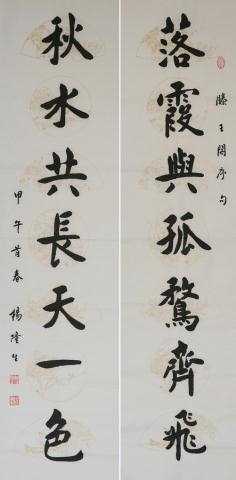 落霞與孤鶩齊飛
滕王閣序句
秋水共長天一色
甲午首春 楊隆生